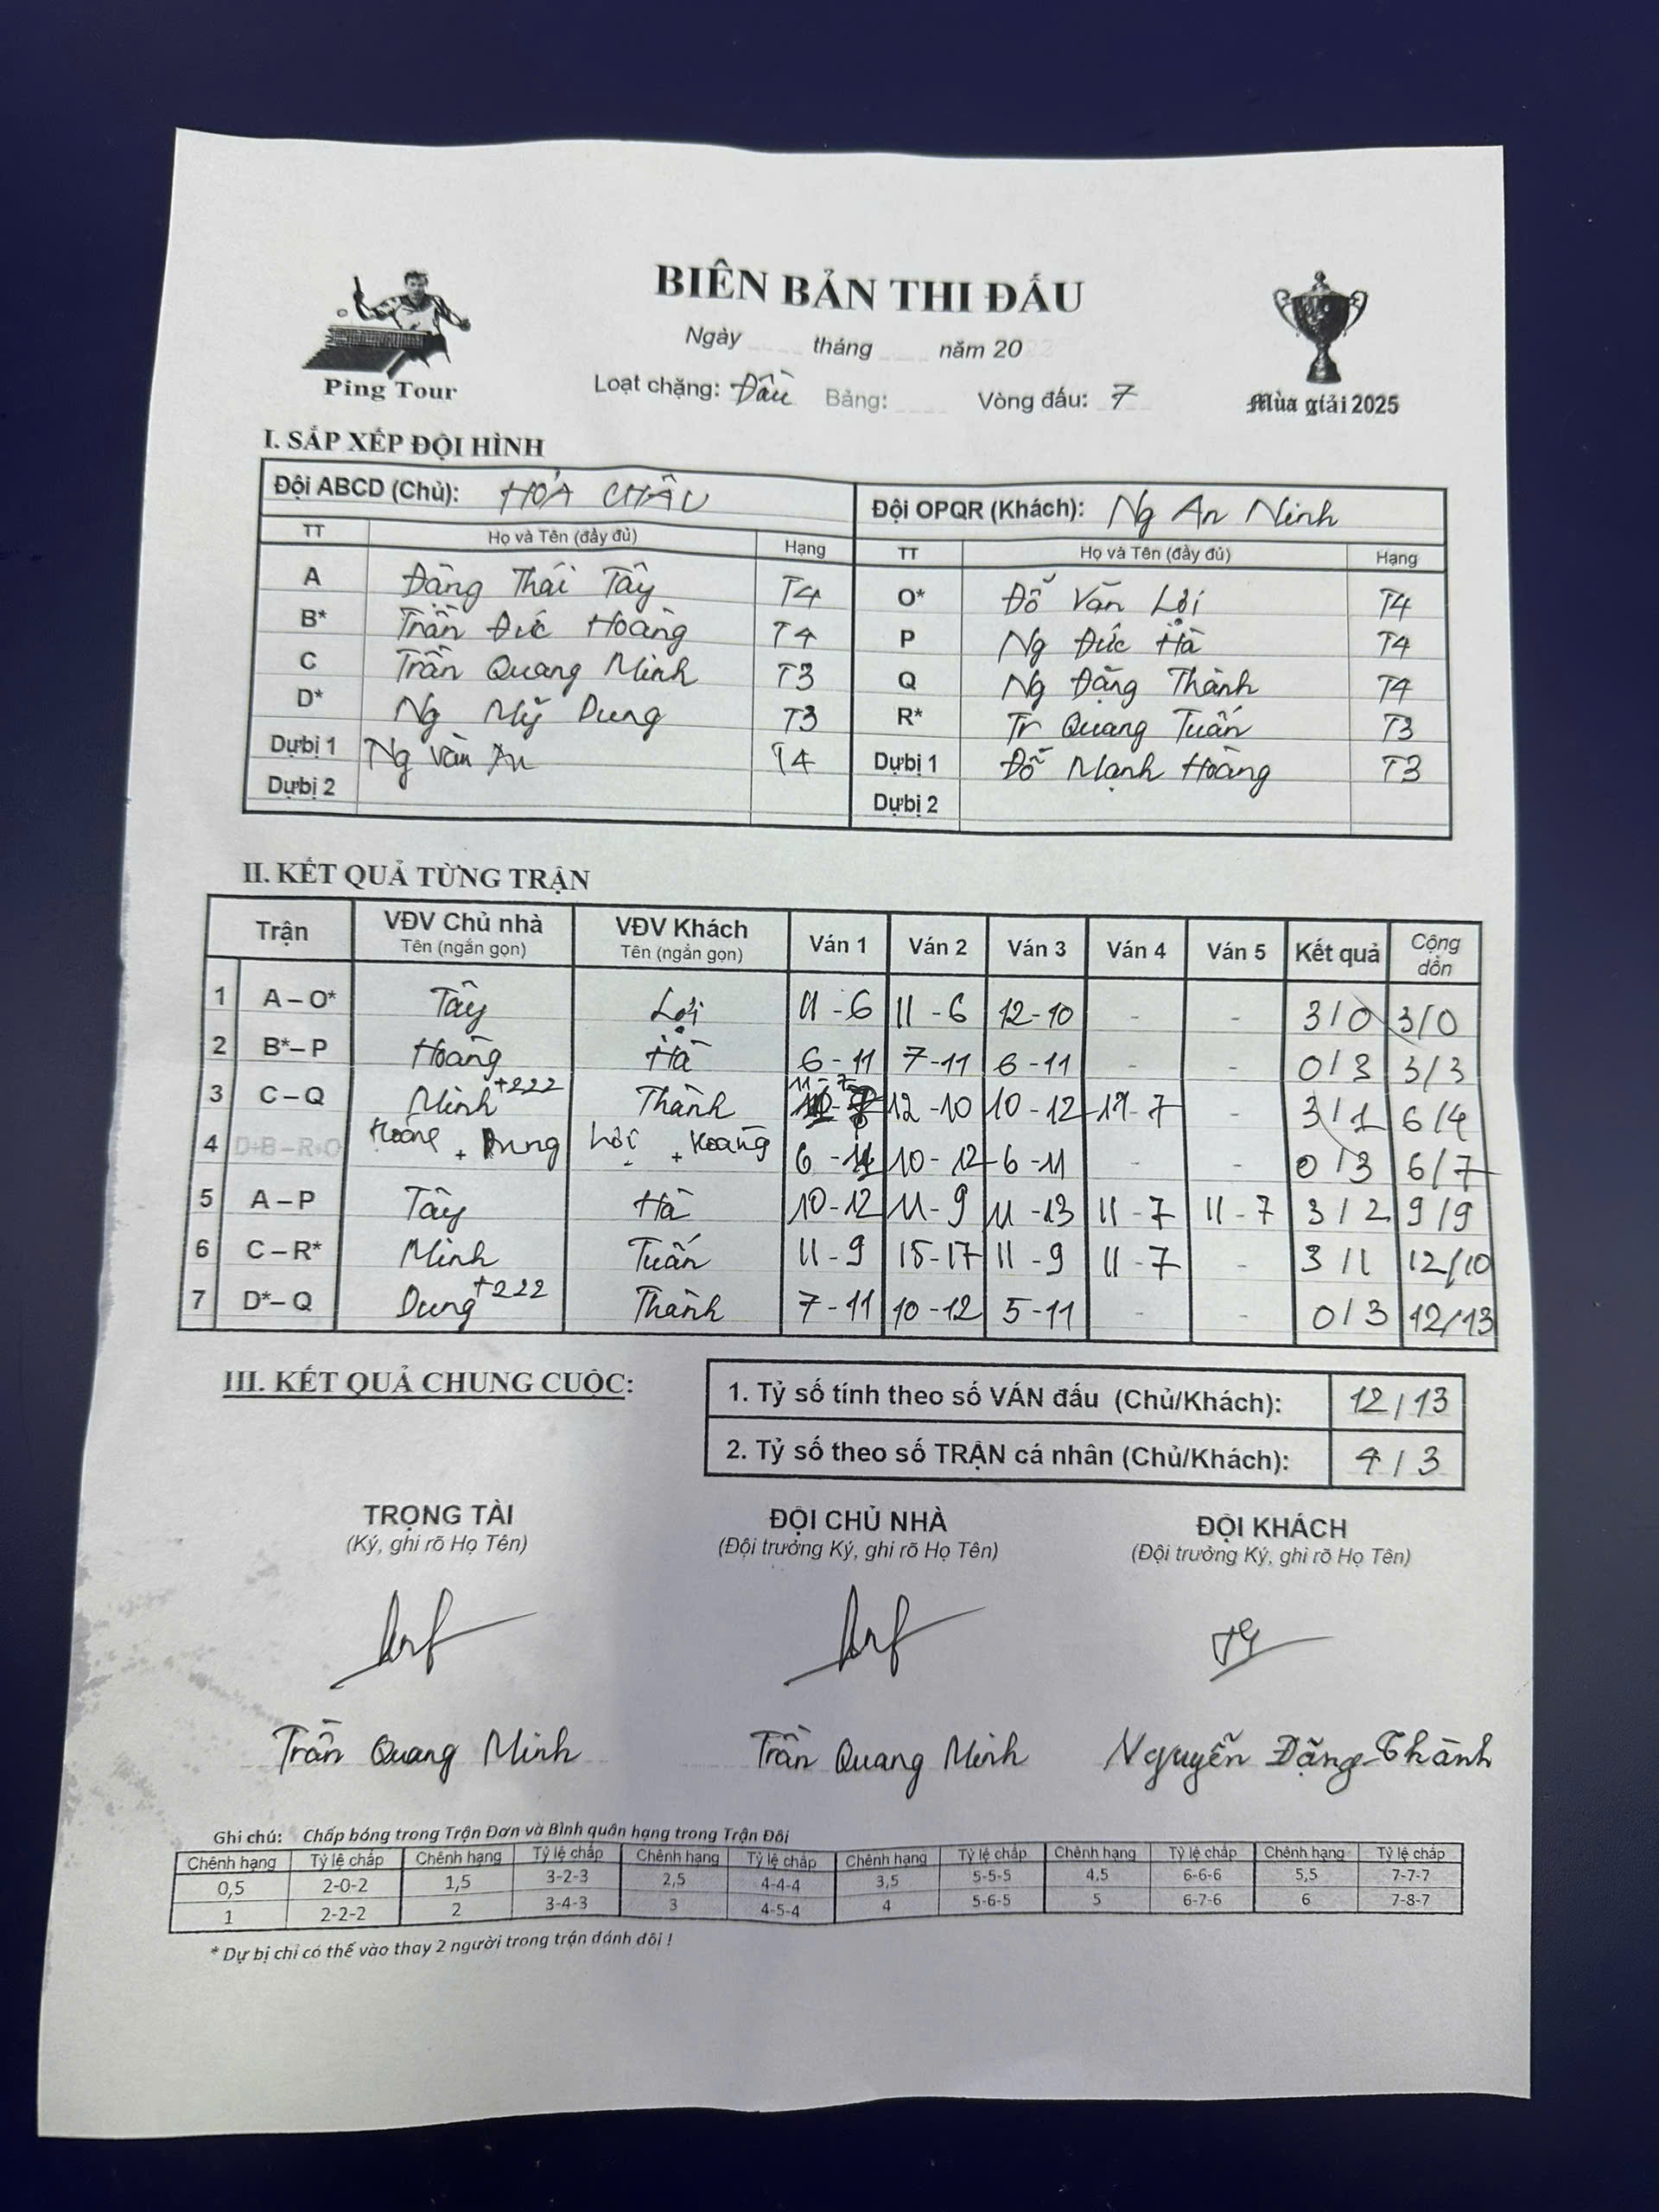 BIÊN BẢN THI ĐẤU
Ngày tháng năm 20
Ping Tour
Loạt chặng: Đầu Bảng: Vòng đấu: 7
Mùa giải 2025
I. SẮP XẾP ĐỘI HÌNH
Đội ABCD (Chủ): HÓA CHÂU Đội OPQR (Khách): Ng An Ninh
TT Họ và Tên (đầy đủ) Hạng TT Họ và Tên (đầy đủ) Hạng
A Đặng Thái Tây T4 O* Đỗ Văn Lợi T4
B* Trần Đức Hoàng T4 P Ng Đức Hà T4
C Trần Quang Minh T3 Q Ng Đặng Thành T4
D* Ng Mỹ Dung T3 R* Tr Quang Tuấn T3
Dự bị 1 Ng Văn An T4 Dự bị 1 Đỗ Mạnh Hoàng T3
Dự bị 2 Dự bị 2
II. KẾT QUẢ TỪNG TRẬN
Trận VĐV Chủ nhà VĐV Khách Ván 1 Ván 2 Ván 3 Ván 4 Ván 5 Kết quả Cộng dồn
Tên (ngắn gọn) Tên (ngắn gọn)
1 A – O* Tây Lợi 11 - 6 11 - 6 12 - 10 - - 3 / 0 3/0
2 B* – P Hoàng Hà 6 - 11 7 - 11 6 - 11 - - 0 / 3 3/3
3 C – Q Minh +222 Thành 11 - 7 12 - 10 10 - 12 11 - 7 - 3 / 1 6/4
4 D+B – R+O Hoàng + Dung Lợi + Hoàng 6 - 11 10 - 12 6 - 11 - - 0 / 3 6/7
5 A – P Tây Hà 10 - 12 11 - 9 11 - 13 11 - 7 11 - 7 3 / 2 9/9
6 C – R* Minh Tuấn 11 - 9 15 - 17 11 - 9 11 - 7 - 3 / 1 12/10
7 D* – Q Dung +222 Thành 7 - 11 10 - 12 5 - 11 - - 0 / 3 12/13
III. KẾT QUẢ CHUNG CUỘC:
1. Tỷ số tính theo số VÁN đấu (Chủ/Khách): 12 / 13
2. Tỷ số theo số TRẬN cá nhân (Chủ/Khách): 4 / 3
TRỌNG TÀI ĐỘI CHỦ NHÀ ĐỘI KHÁCH
(Ký, ghi rõ Họ Tên) (Đội trưởng Ký, ghi rõ Họ Tên) (Đội trưởng Ký, ghi rõ Họ Tên)
Trần Quang Minh Trần Quang Minh Nguyễn Đặng Thành
Ghi chú: Chấp bóng trong Trận Đơn và Bình quân hạng trong Trận Đôi
Chênh hạng Tỷ lệ chấp Chênh hạng Tỷ lệ chấp Chênh hạng Tỷ lệ chấp Chênh hạng Tỷ lệ chấp Chênh hạng Tỷ lệ chấp Chênh hạng Tỷ lệ chấp
0,5 2-0-2 1,5 3-2-3 2,5 4-4-4 3,5 5-5-5 4,5 6-6-6 5,5 7-7-7
1 2-2-2 2 3-4-3 3 4-5-4 4 5-6-5 5 6-7-6 6 7-8-7
* Dự bị chỉ có thể vào thay 2 người trong trận đánh đôi !